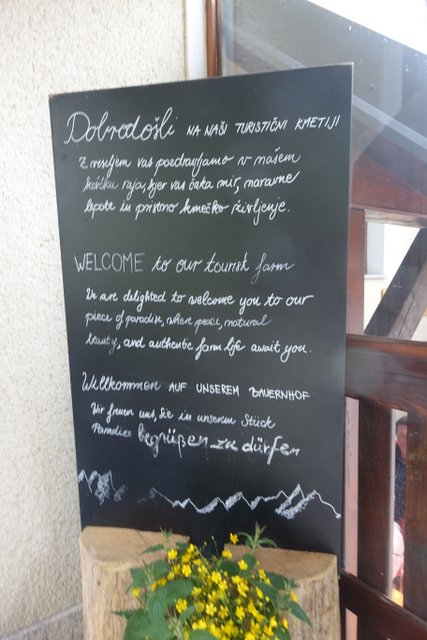 Dobrodošli NA NAŠI TURISTIČNI KMETIJI
Z veseljem vas pozdravljamo v našem
koščku raja, kjer vas čaka mir, naravne
lepote in pristno kmečko življenje.
WELCOME to our tourist farm
We are delighted to welcome you to our
piece of paradise, where peace, natural
beauty, and authentic farm life await you.
Willkommen AUF UNSEREM BAUERNHOF
Wir freuen uns, Sie in unserem Stück
Paradies begrüßen zu dürfen